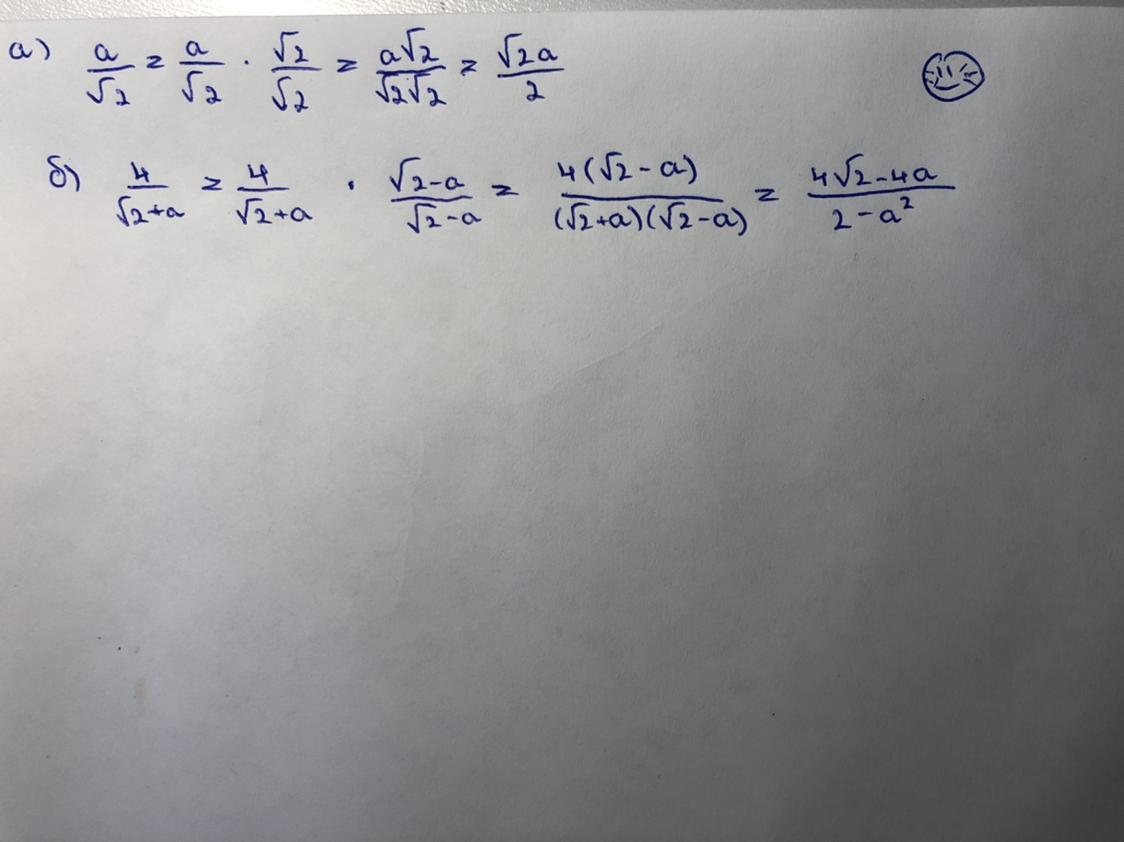 а) a/√2 = a/√2 · √2/√2 = a√2/√2√2 = √2a/2
б) 4/√2+a = 4/√2+a · √2-a/√2-a = 4(√2-a)/(√2+a)(√2-a) = 4√2-4a/2-a²